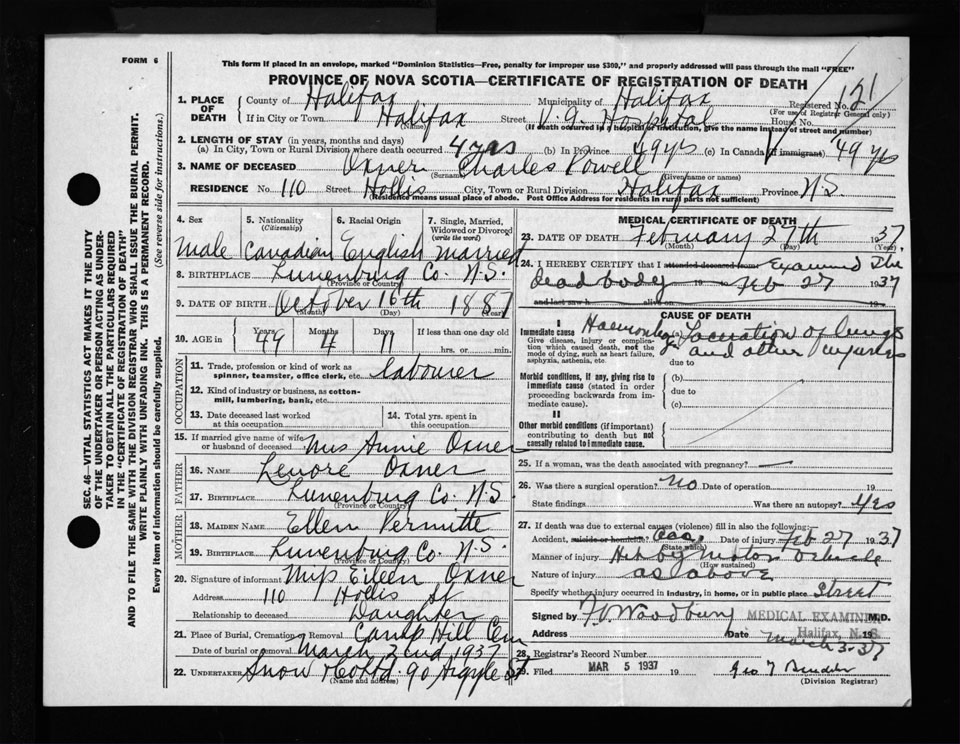 FORM 6
This form if placed in an envelope, marked "Dominion Statistics—Free, penalty for improper use $300," and properly addressed will pass through the mail "FREE"
PROVINCE OF NOVA SCOTIA—CERTIFICATE OF REGISTRATION OF DEATH
1. PLACE OF DEATH County of Halifax Municipality of Halifax Registered No. 121
(For use of Registrar General only)
If in City or Town Halifax Street V. G. Hospital House No.
(Name) (If death occurred in a hospital or institution, give the name instead of street and number)
2. LENGTH OF STAY (in years, months and days)
(a) In City, Town or Rural Division where death occurred 4 yrs (b) In Province 49 yrs (c) In Canada (if immigrant) 49 yrs
3. NAME OF DECEASED Oxner Charles Powell
(Surname) (Given name or names)
RESIDENCE No. 110 Street Hollis City, Town or Rural Division Halifax Province N.S.
(Residence means usual place of abode. Post Office Address for residents in rural parts not sufficient)
4. Sex 5. Nationality (Citizenship) 6. Racial Origin 7. Single, Married, Widowed or Divorced (write the word)
Male Canadian English Married
8. BIRTHPLACE Lunenburg Co. N.S.
(Province or Country)
9. DATE OF BIRTH October 16th 1887
(Month) (Day) (Year)
10. AGE in Years Months Days If less than one day old
49 4 11 hrs. or min.
OCCUPATION
11. Trade, profession or kind of work as spinner, teamster, office clerk, etc. labourer
12. Kind of industry or business, as cotton-mill, lumbering, bank, etc.
13. Date deceased last worked at this occupation
14. Total yrs. spent in this occupation
15. If married give name of wife or husband of deceased Mrs Annie Oxner
FATHER
16. NAME Lenore Oxner
17. BIRTHPLACE Lunenburg Co. N.S.
(Province or Country)
MOTHER
18. MAIDEN NAME Ellen
19. BIRTHPLACE Lunenburg Co. N.S.
(Province or Country)
20. Signature of informant Miss Eileen Oxner
Address 110 Hollis St
Relationship to deceased Daughter
21. Place of Burial, Cremation or Removal Camp Hill Cem
Date of burial or removal March 2nd 1937
22. UNDERTAKER Snow & Co Ltd 90 Argyle St
(Name and address)
MEDICAL CERTIFICATE OF DEATH
23. DATE OF DEATH February 27th 1937
(Month) (Day) (Year)
24. I HEREBY CERTIFY that I attended deceased from Examined the
dead body 19 to Feb 27 1937
and last saw h alive on 19
CAUSE OF DEATH
I
Immediate cause Haemorrhage (a) Laceration of lungs
and other injuries
Give disease, injury or complication which caused death, not the mode of dying, such as heart failure, asphyxia, asthenia, etc.
due to
Morbid conditions, if any, giving rise to immediate cause (stated in order proceeding backwards from immediate cause).
(b)
due to
(c)
II
Other morbid conditions (if important) contributing to death but not causally related to immediate cause.
25. If a woman, was the death associated with pregnancy? —
26. Was there a surgical operation? No Date of operation 19
State findings Was there an autopsy? Yes
27. If death was due to external causes (violence) fill in also the following:
Accident, suicide or homicide? acc. Date of injury Feb 27 1937
(State which)
Manner of injury Hit by motor vehicle
(How sustained)
Nature of injury as above
Specify whether injury occurred in industry, in home, or in public place Street
Signed by F. V. Woodbury MEDICAL EXAMINER M.D.
Address Halifax, N. S.
Date March 3-37 19
28. Registrar's Record Number
29. Filed MAR 5 1937 19
(Division Registrar)
SEC. 46—VITAL STATISTICS ACT MAKES IT THE DUTY
OF THE UNDERTAKER OR PERSON ACTING AS UNDER-
TAKER TO OBTAIN ALL THE PARTICULARS REQUIRED
IN THE "CERTIFICATE OF REGISTRATION OF DEATH"
AND TO FILE THE SAME WITH THE DIVISION REGISTRAR WHO SHALL ISSUE THE BURIAL PERMIT.
WRITE PLAINLY WITH UNFADING INK. THIS IS A PERMANENT RECORD.
Every item of information should be carefully supplied. (See reverse side for instructions.)